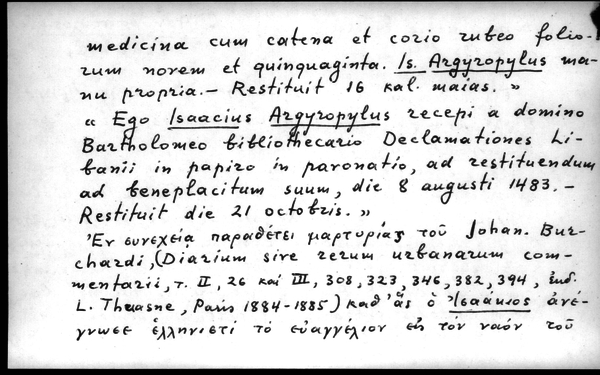 medicina cum catena et corio rubeo folio-
rum novem et quinquaginta. Is. Argyropylus ma-
nu propria.— Restituit 16 kal. maias. »
« Ego Isaacius Argyropylus recepi a domino
Bartholomeo bibliothecario Declamationes Li-
banii in papiro in pavonatio, ad restituendum
ad beneplacitum suum, die 8 augusti 1483.—
Restituit die 21 octobris. »
Ἐν συνεχεία παραθέτει μαρτυρίας τοῦ Johan. Bur-
chardi, (Diarium sive rerum urbanarum com-
mentarii, τ. II, 26 καί III, 308, 323, 346, 382, 394, ἐκδ.
L. Thuasne, Paris 1884-1885) καθ' ἃς ὁ Ἰσαάκιος ἀνέ-
γνωσε ἑλληνιστί τό εὐαγγέλιον εἰς τόν ναόν τοῦ